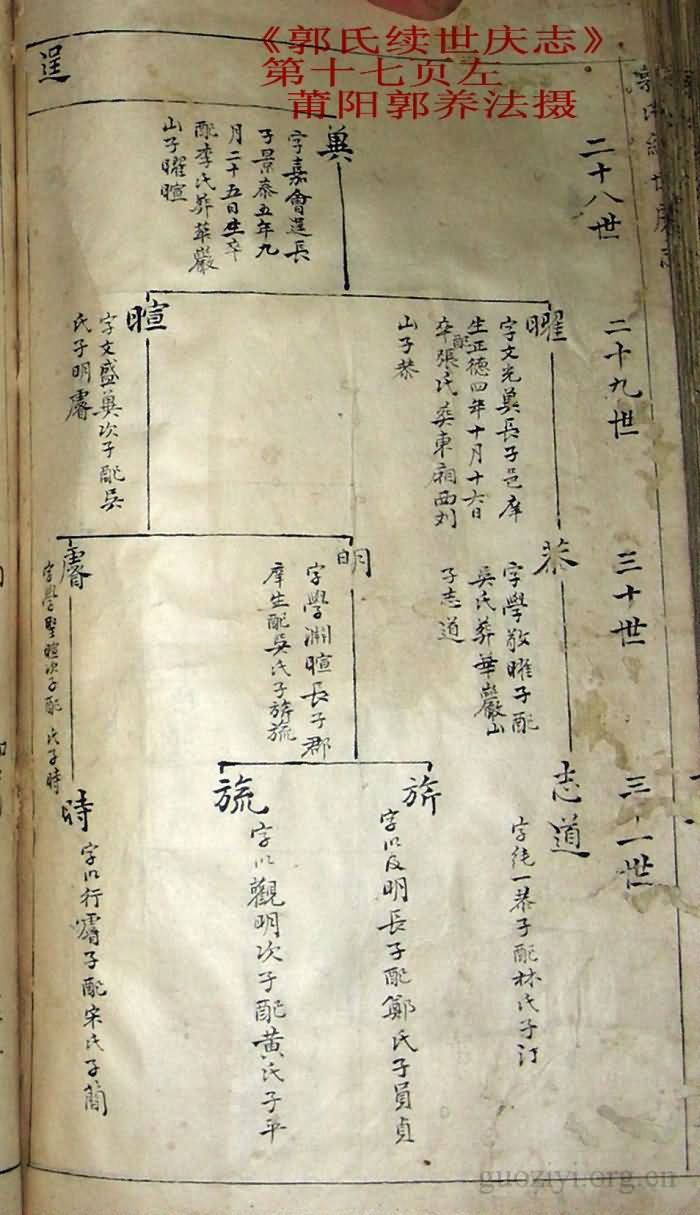 《郭氏续世庆志》
第十七页左
莆阳郭养法摄
郭氏續世慶志
二十八世
二十九世
三十世
三十一世
逞
冀
字嘉會逞長
子景泰五年九
月二十五日生卒
配李氏葬華巖
山子曜暄
曜
字文光冀長子邑庠
生正德四年十月十六日
卒配張氏葬東廂西刘
山子恭
暄
字文盛冀次子配吳
氏子明睿
恭
字學敬曜子配
吳氏葬華巖山
子志道
明
字學淵暄長子郡
庠生配吳氏子旂旒
字學聖暄次子配 氏子時
志道
字純一恭子配林氏子汀
旂
字以反明長子配鄭氏子員貞
旒
字以觀明次子配黃氏子平
時
字以行 子配宋氏子蕳
guoziyi.org.cn